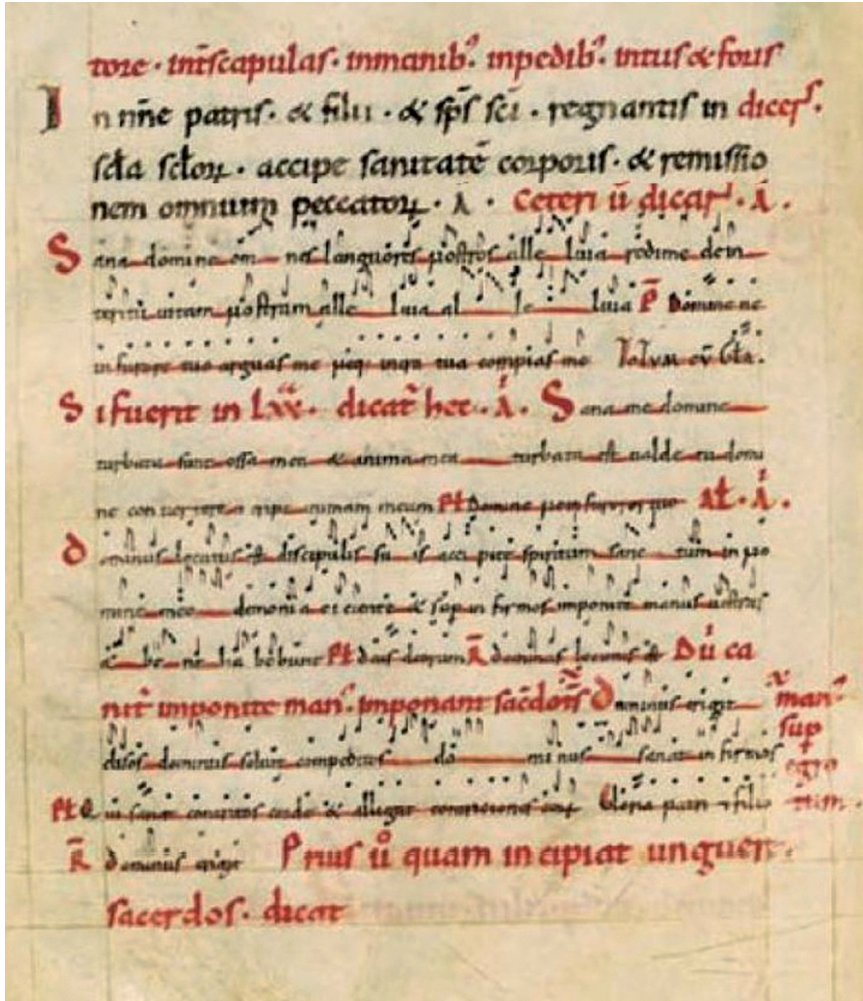 tore · int̄ scapulas · inmanibꝰ inpedibꝰ intus & foris
In nn̄e patris · & filii · & sp̄s sc̄i · regnantis in dicens ·
sc̄la sc̄loꝝ · accipe sanitatē corporis · & remissio
nem omnium peccatoꝝ · A · Ceteri ū dicaꝰ · A ·
Sana domine om nes languores nostros alle luia redime de in
teritū uitam nostram alle luia al le luia P̄ Domine ne
in furore tuo arguas me neq· in ira tua
Si fuerit in Lxx · dicat̄ hec · A · Sana me domine
turbata sunt ossa mea & anima mea turbata est ualde tu domi
ne animam meam Domine A ·
Dominus locutus est discipulis su is acci pite spiritum sanc tum in no
mine meo demonia ei cite & sup in firmos imponite manus uestras
& be ne ha bebunt deus deorum R̄ dominus locutus & Dū ca
nit̄ imponite manꝰ imponant sac̄dot̄s Dominus erigit manꝰ
elisos dominus soluit compeditos do minus sanat in firmos sup
egro
Qui sanat contritos corde & alligat contriciones eoꝝ Gloria patri & filio tum ·
R̄ dominus erigit Prius ů quam incipiat unguere ·
sacerdos · dicat